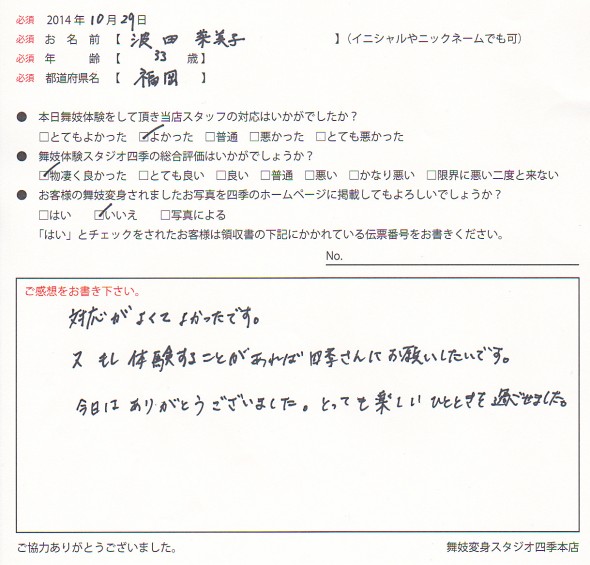 必須 2014年10月29日
必須 お名前【波田菜美子】(イニシャルやニックネームでも可)
必須 年齢【33歳】
必須 都道府県名【福岡】
● 本日舞妓体験をして頂き当店スタッフの対応はいかがでしたか？
□とてもよかった ☑よかった □普通 □悪かった □とても悪かった
● 舞妓体験スタジオ四季の総合評価はいかがでしょうか？
☑物凄く良かった □とても良い □良い □普通 □悪い □かなり悪い □限界に悪い二度と来ない
● お客様の舞妓変身されましたお写真を四季のホームページに掲載してもよろしいでしょうか？
□はい ☑いいえ □写真による
「はい」とチェックをされたお客様は領収書の下記にかかれている伝票番号をお書きください。
No.
ご感想をお書き下さい。
対応がよくてよかったです。
又もし体験することがあれば四季さんにお願いしたいです。
今日はありがとうございました。とっても楽しいひとときを過ごせました。
ご協力ありがとうございました。
舞妓変身スタジオ四季本店